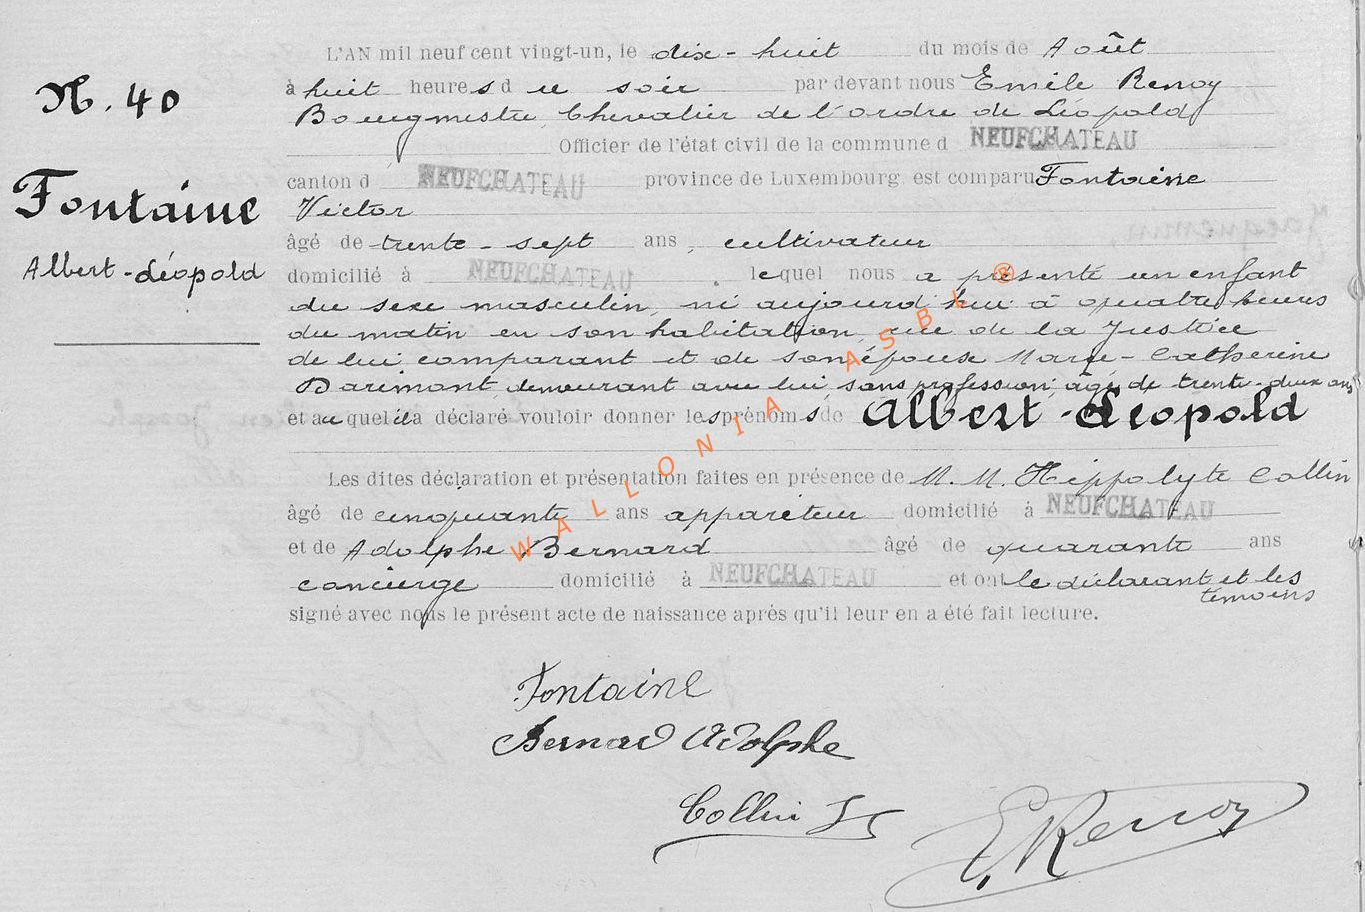 N. 40
Fontaine
Albert-Léopold
L'AN mil neuf cent vingt-un, le dix-huit du mois de Août
à huit heures du soir par devant nous Emile Renoy
Bourgmestre, Chevalier de l'ordre de Léopold
Officier de l'état civil de la commune d NEUFCHATEAU
canton d NEUFCHATEAU province de Luxembourg est comparu Fontaine
Victor
âgé de trente-sept ans, cultivateur
domicilié à NEUFCHATEAU, lequel nous a présenté un enfant
du sexe masculin, né aujourd'hui à quatre heures
du matin en son habitation, rue de la Justice
de lui comparant et de son épouse Marie-Catherine
Darimont, demeurant avec lui, sans profession, âgée de trente-deux ans
et auquel il a déclaré vouloir donner les prénoms de Albert-Léopold
Les dites déclaration et présentation faites en présence de M.M. Hippolyte Collin
âgé de cinquante ans appariteur domicilié à NEUFCHATEAU
et de Adolphe Bernard âgé de quarante ans
concierge domicilié à NEUFCHATEAU et ont le déclarant et les
témoins
signé avec nous le présent acte de naissance après qu'il leur en a été fait lecture.
Fontaine
Bernard Adolphe
Collin
E. Renoy
WALLONIA ASBL ®